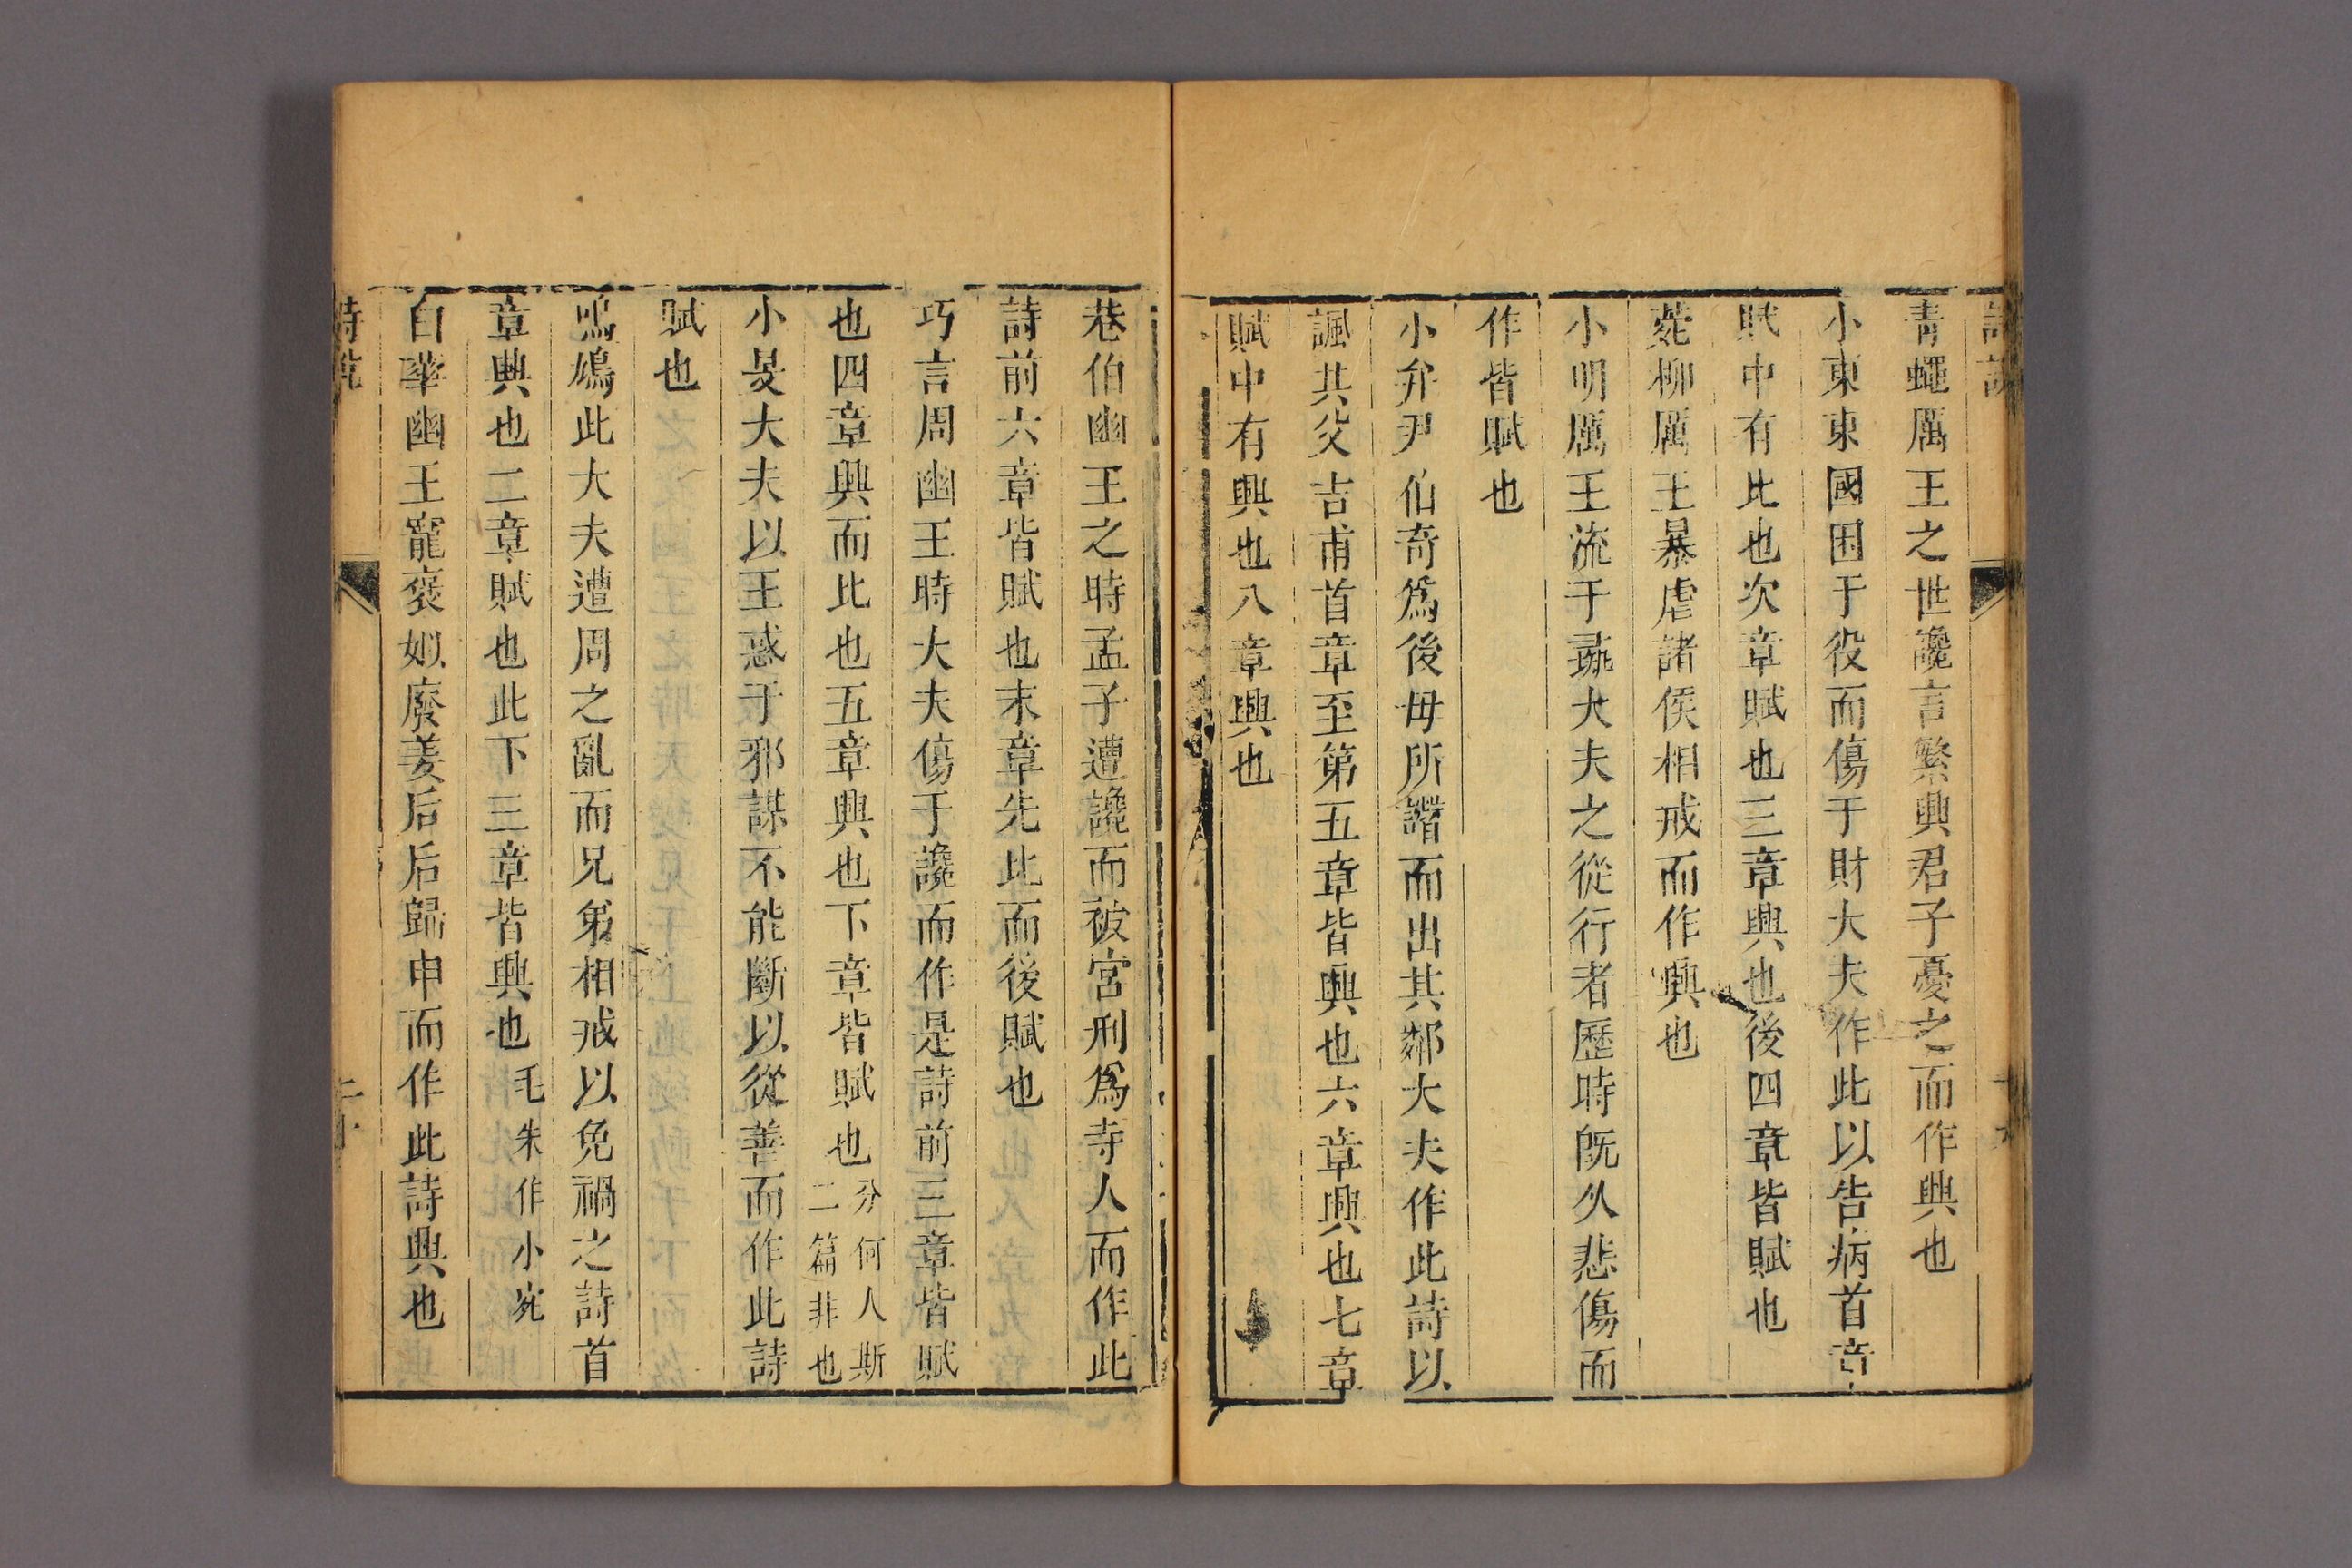 詩說
青蠅厲王之世讒言繁興君子憂之而作興也
小東東國困于役而傷于財大夫作此以告病首章
賦中有比也次章賦也三章興也後四章皆賦也
菀柳厲王暴虐諸侯相戒而作興也
小明厲王流于彘大夫之從行者歷時既久悲傷而
作皆賦也
小弁尹伯奇爲後母所譖而出其鄰大夫作此詩以
諷其父吉甫首章至第五章皆興也六章興也七章
賦中有興也八章興也
巷伯幽王之時孟子遭讒而被宮刑爲寺人而作此
詩前六章皆賦也末章先比而後賦也
巧言周幽王時大夫傷于讒而作是詩前三章皆賦
也四章興而比也五章興也下章皆賦也分何人斯
二篇非也
小旻大夫以王惑于邪謀不能斷以從善而作此詩
賦也
鳴鳩此大夫遭周之亂而兄弟相戒以免禍之詩首
章興也二章賦也此下三章皆興也毛朱作小宛
白華幽王寵褒姒廢姜后后歸申而作此詩興也
詩說